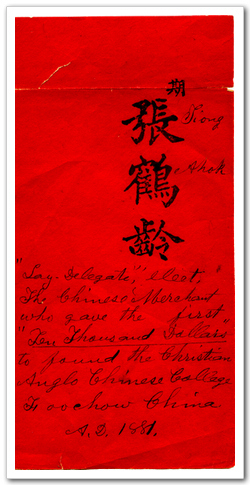 期
張鶴齡
Tiong
Ahok
"Lay Delegate", elect,"
The Chinese Merchant
who gave the first
"Ten Thousand Dollars"
to found the Christian
Anglo Chinese College
Foochow China
A.D. 1881.